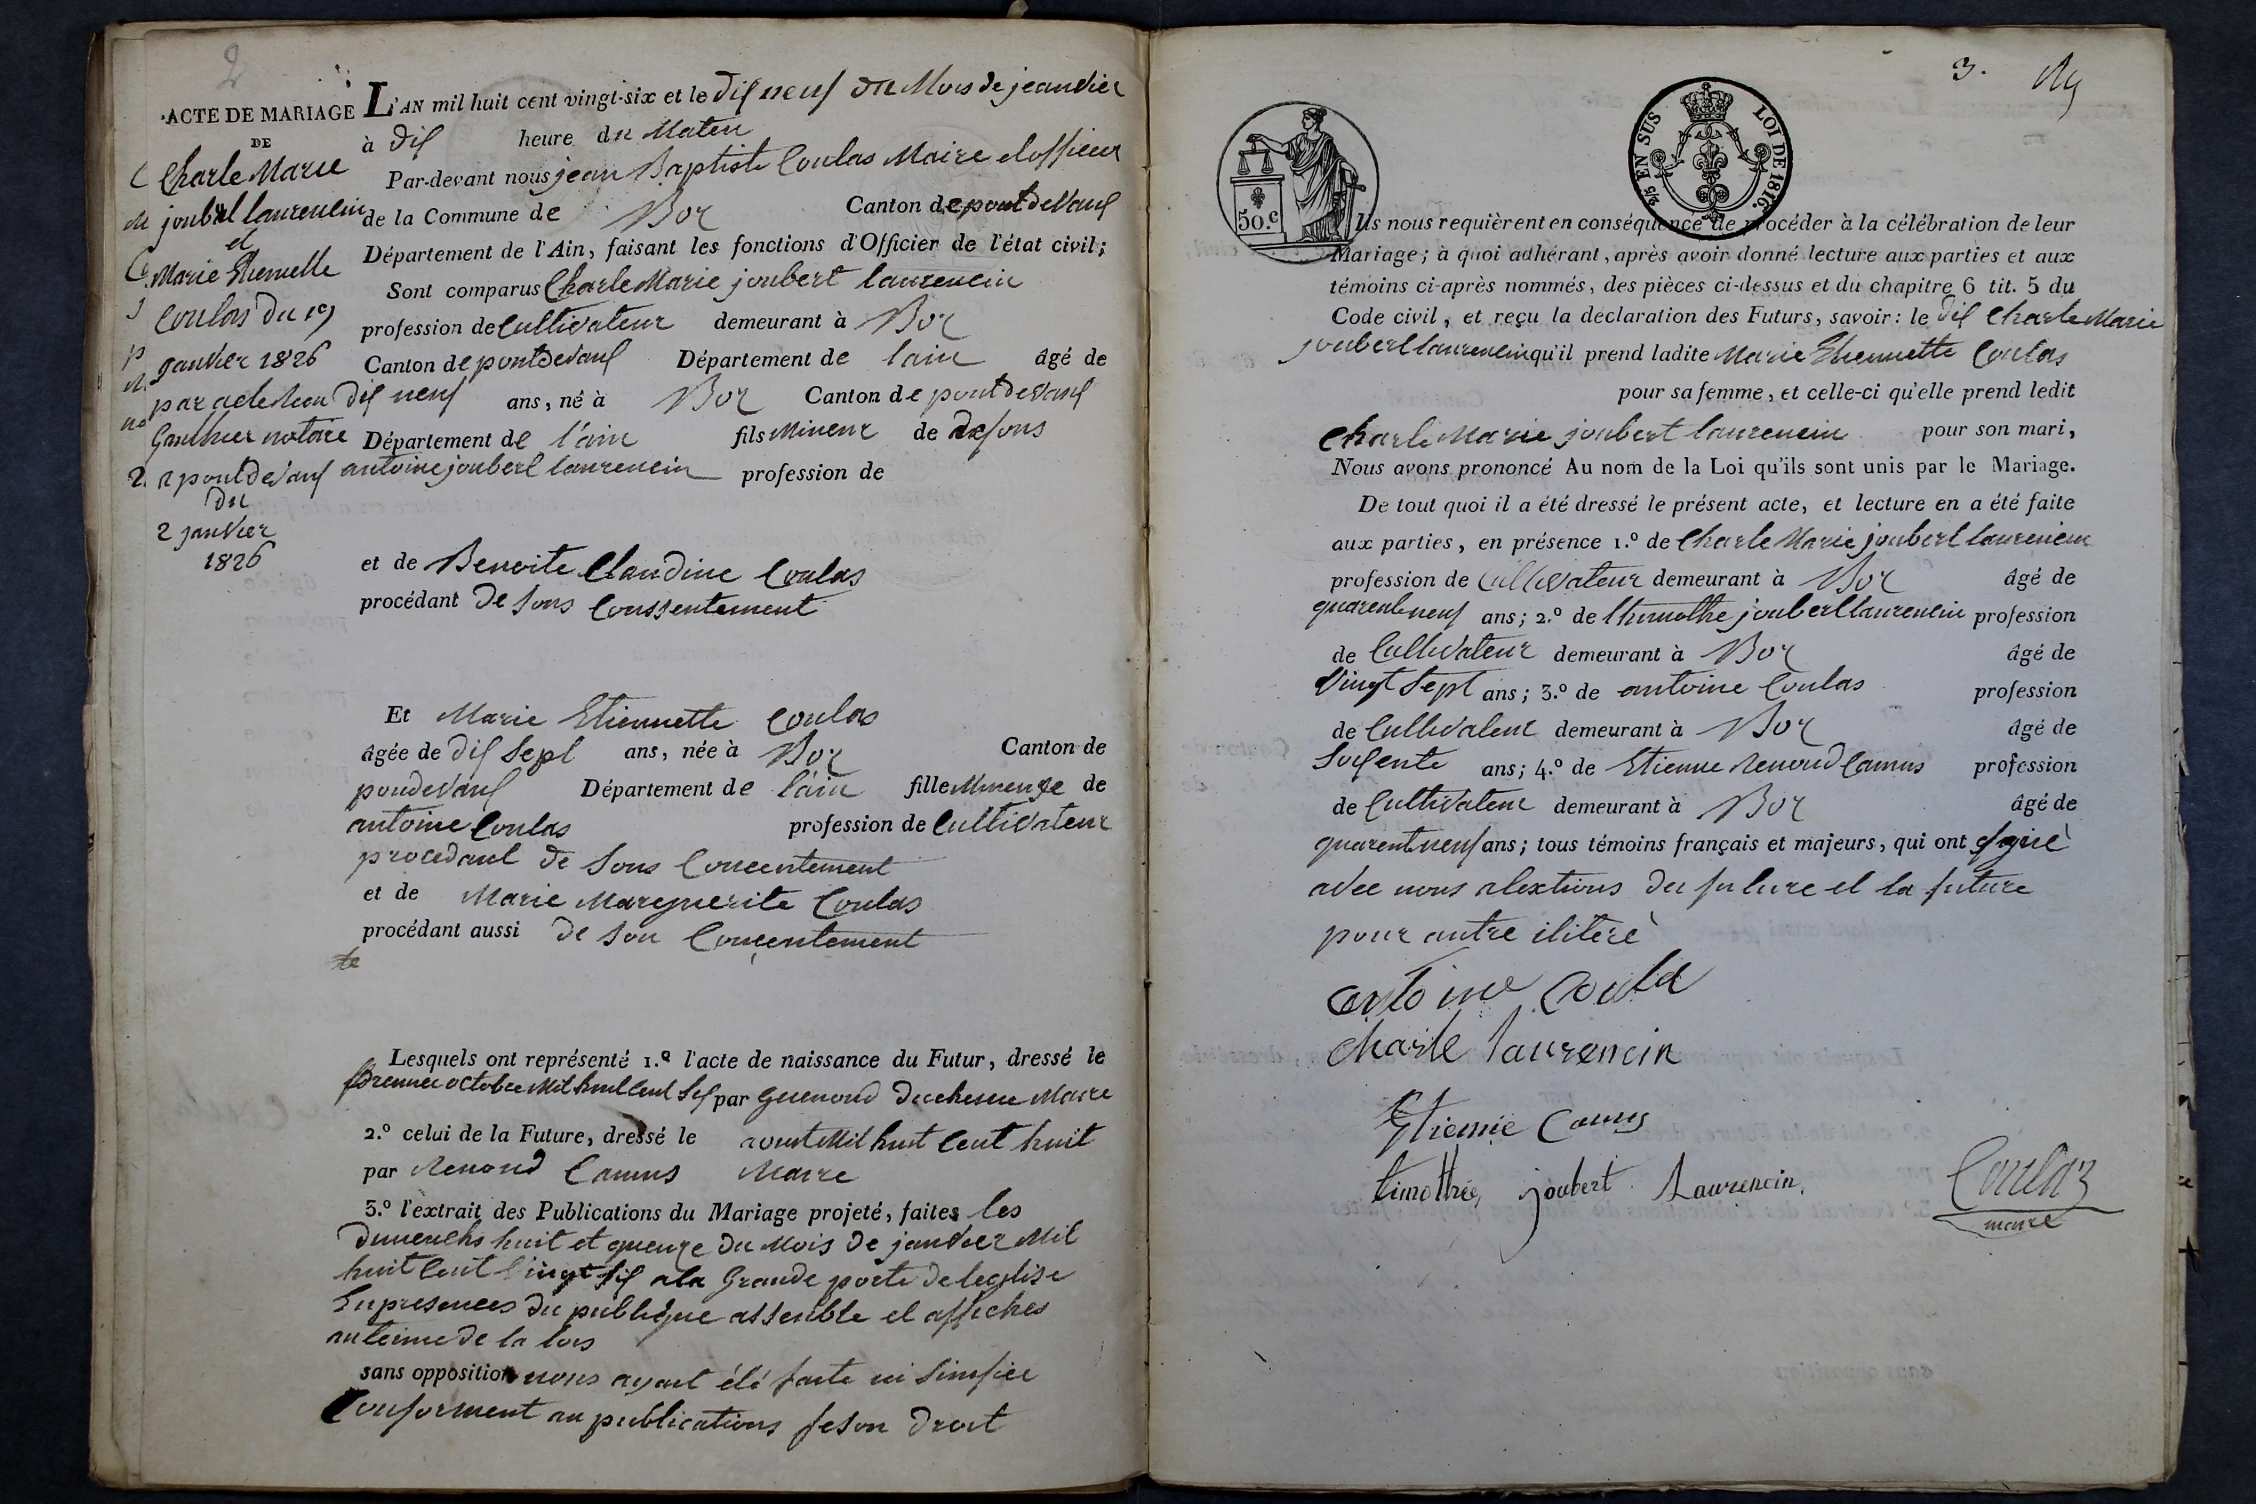 2
ACTE DE MARIAGE
DE
Charle Marie
joubert laurencin
et
Marie Etiennette
Coulas du 19
janvier 1826
par acte recu
Gauthier notaire
a pontdevaux
du
2 janvier
1826
L'AN mil huit cent vingt-six et le dix neuf du Mois de jeanvier
à dix heure du Maten
Par-devant nous jean Baptiste Coulas Maire elofficier
de la Commune de Boz Canton de pontdeVaux
Département de l'Ain, faisant les fonctions d'Officier de l'état civil;
Sont comparus Charle Marie joubert laurencin
profession de Cultivateur demeurant à Boz
Canton de pontdevaux Département de lain âgé de
dix neuf ans, né à Boz Canton de pontdevaux
Département de l'ain fils Mineur de defons
antoine joubert laurencin profession de
et de Benoite Claudine Coulas
procédant de sons Conssentement
Et Marie Etiennette Coulas
âgée de dix sept ans, née à Boz Canton de
pondevaux Département de l'ain fille Mineure de
antoine Coulas profession de Cultivateur
procedant de sons Concentement
et de Marie Marguerite Coulas
procédant aussi de son Conçentement
Lesquels ont représenté 1.º l'acte de naissance du Futur, dressé le
premier octobre Mil huit Cent six par Guenoud duchesne Maire
2.º celui de la Future, dressé le aoust Mil huit Cent huit
par Renoud Camus Maire
3.º l'extrait des Publications du Mariage projeté, faites les
dimenchs huit et quenze du Mois de janvier Mil
huit Cent Vingt six ala Grande porte de leglise
Enpresences du publique assenble et affiches
auterme de la lois
sans opposition nous ayant été faite ni sinifier
Conforment au publications feson droit
3.
50.c
2/5 EN SUS LOI DE 1816.
Ils nous requièrent en conséquence de procéder à la célébration de leur
Mariage; à quoi adhérant, après avoir donné lecture aux parties et aux
témoins ci-après nommés, des pièces ci-dessus et du chapitre 6 tit. 5 du
Code civil, et reçu la déclaration des Futurs, savoir: le dit Charle Marie
joubert laurencin qu'il prend ladite Marie Etiennette Coulas
pour sa femme, et celle-ci qu'elle prend ledit
Charle Marie joubert laurencin pour son mari,
Nous avons prononcé Au nom de la Loi qu'ils sont unis par le Mariage.
De tout quoi il a été dressé le présent acte, et lecture en a été faite
aux parties, en présence 1.º de Charle Marie joubert laurencin
profession de Cultivateur demeurant à Boz âgé de
quarent neuf ans; 2.º de thimothe joubert laurencin profession
de Cultivateur demeurant à Boz âgé de
Vingt sept ans; 3.º de antoine Coulas profession
de Cultivateur demeurant à Boz âgé de
soisente ans; 4.º de Etienne Renoud Camus profession
de Cultivateur demeurant à Boz âgé de
quarent neuf ans; tous témoins français et majeurs, qui ont signé
avec nous alextions du future et la future
pour autre ilitèré
antoine Coula
Charle laurencin
Etienne Camus
timothée joubert Laurencin.
Coulaz
maire